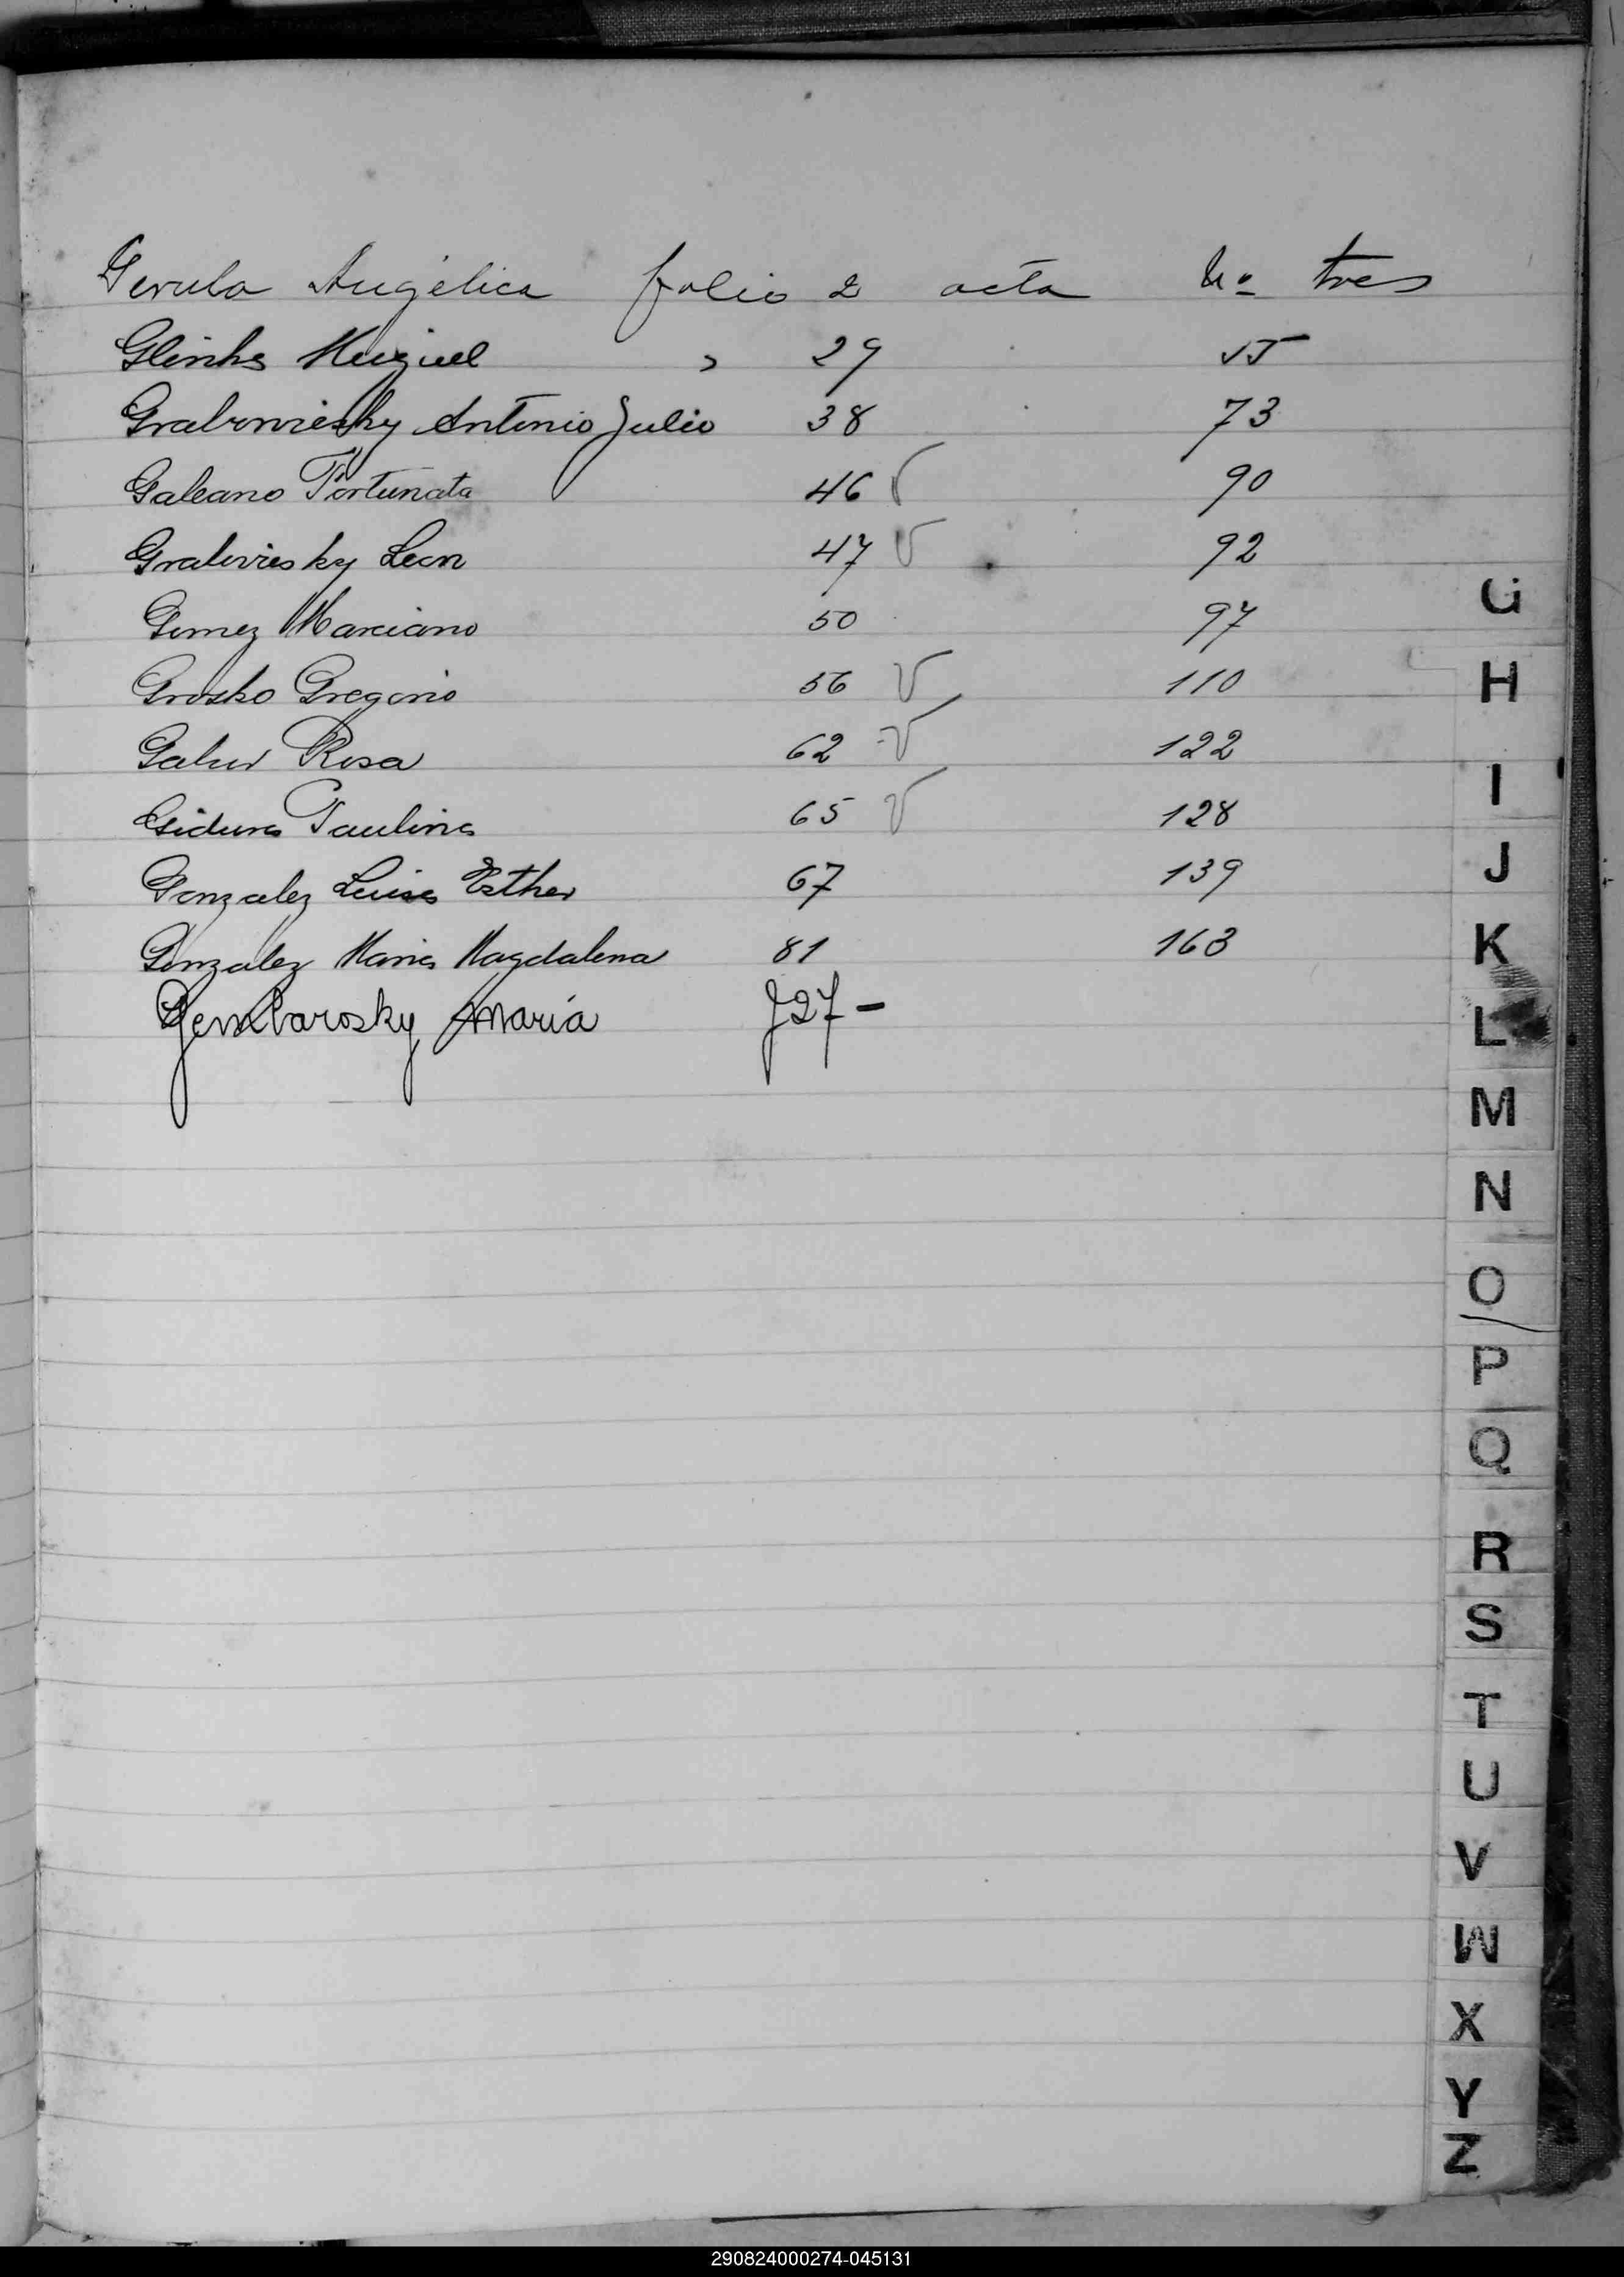 Gerula Angélica folio 2 acta Nº tres
Glinka Miguel " 29 55
Grabowiesky Antonio Julio 38 73
Galeano Fortunata 46 90
Graboviesky Leon 47 92
Gomez Marciano 50 97
Grosko Gregorio 56 110
Rosa 62 122
Paulina 65 128
Gonzalez Luisa Esther 67 139
Gonzalez Maria Magdalena 81 163
Gembarosky Maria f27 -
G
H
I
J
K
L
M
N
O
P
Q
R
S
T
U
V
W
X
Y
Z
290824000274-045131